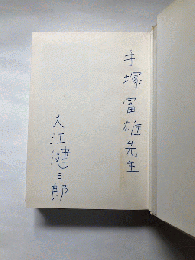 手塚富雄先生
入江健三郎